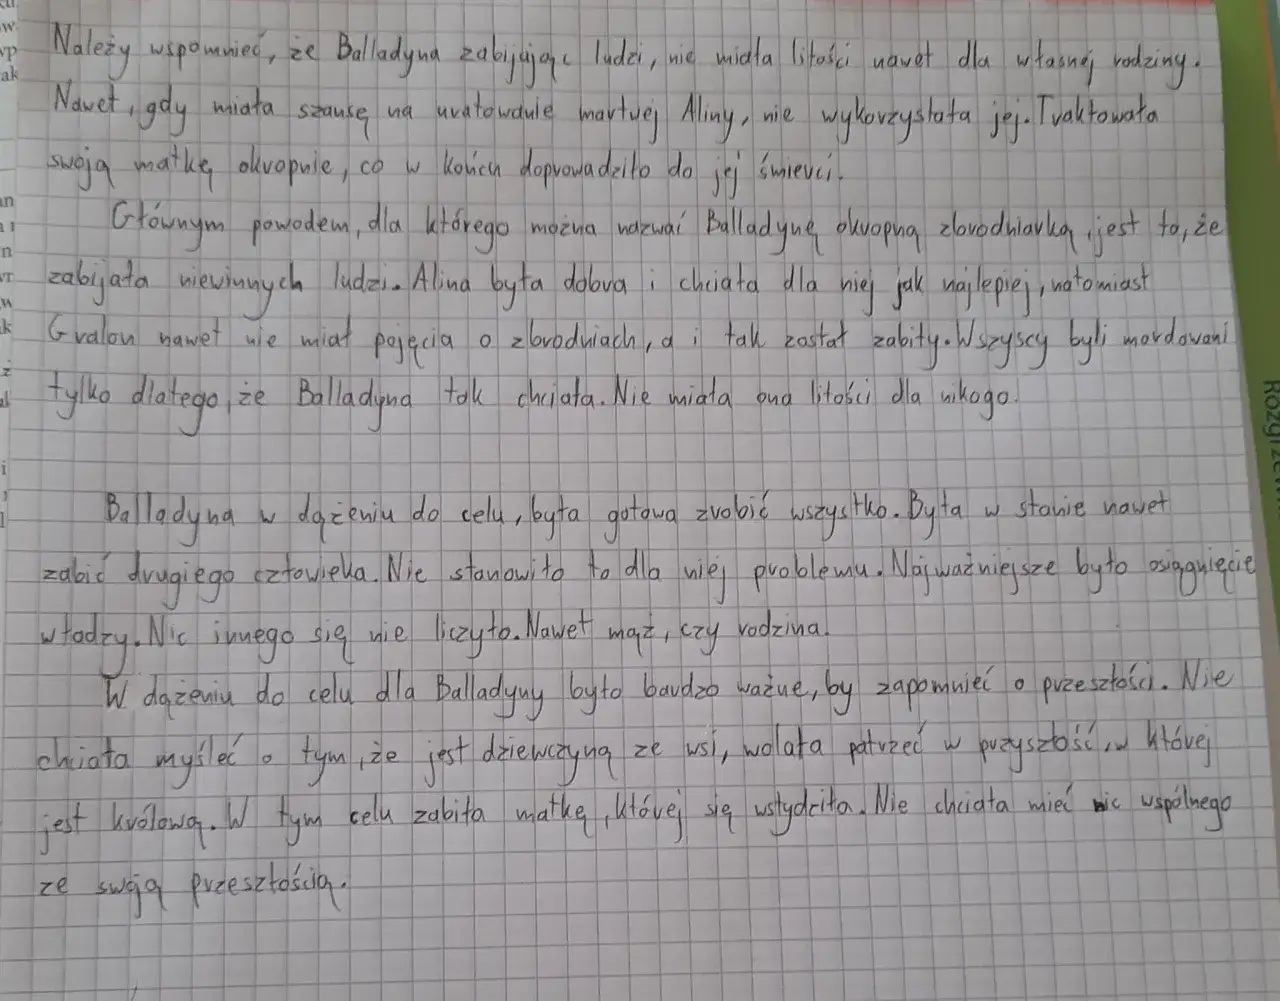 Należy wspomnieć, że Balladyna zabijając ludzi, nie miała litości nawet dla własnej rodziny.
Nawet, gdy miała szansę na uratowanie martwej Aliny, nie wykorzystała jej. Traktowała
swoją matkę okropnie, co w końcu doprowadziło do jej śmierci.
Głównym powodem, dla którego można nazwać Balladynę okropną zbrodniarką, jest to, że
zabijała niewinnych ludzi. Alina była dobra i chciała dla niej jak najlepiej, natomiast
Gralon nawet nie miał pojęcia o zbrodniach, a i tak został zabity. Wszyscy byli mordowani
tylko dlatego, że Balladyna tak chciała. Nie miała ona litości dla nikogo.
Balladyna w dążeniu do celu, była gotowa zrobić wszystko. Była w stanie nawet
zabić drugiego człowieka. Nie stanowiło to dla niej problemu. Najważniejsze było osiągnięcie
władzy. Nic innego się nie liczyło. Nawet mąż, czy rodzina.
W dążeniu do celu dla Balladyny było bardzo ważne, by zapomnieć o przeszłości. Nie
chciała myśleć o tym, że jest dziewczyną ze wsi, wolała patrzeć w przyszłość, w której
jest królową. W tym celu zabiła matkę, której się wstydziła. Nie chciała mieć nic wspólnego
ze swoją przeszłością.